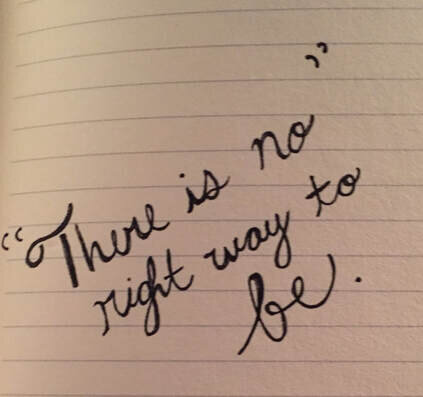 “There is no”
right way to
be.